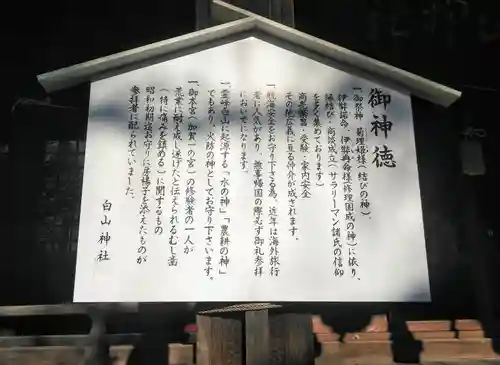 御神徳
一、御祭神 菊理媛様(結びの神)、
伊弉諾命、伊弉冉命様修理固成の神)に依り、
縁結び・商談成立(サラリーマン諸氏の信仰
を多く集めております)
商売繁昌・受験・家内安全
その他広義に亘る仲介が成されます。
一、航海安全をお守り下さる為、近年は海外旅行
者に人気があり、無事帰国の際必ず御礼参拝
においでになります。
一、霊峰白山に起源する「水の神」「農耕の神」
でもあり、火防の神としてお守り下さいます。
一、御本宮(加賀一の宮)の修験者の一人が
荒業に耐え成し遂げたと伝えられるむし歯
(特に痛みを鎮める)に関するもの
昭和初期迄お守りに房楊子を添えたものが
参拝者に配られていました。
白山神社